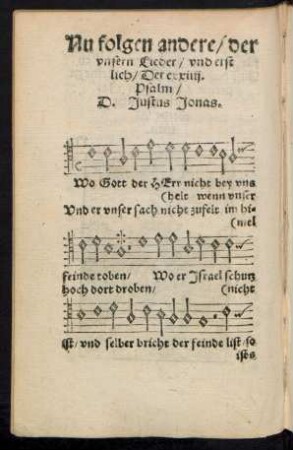 Nu folgen andere/ der
vnsern Lieder/ vnd erst
lich/ Der cxxiiij.
Psalm/
D. Justus Jonas.
Wo Gott der HErr nicht bey vns
(helt wenn vnser
Vnd er vnser sach nicht zufelt im hi-
(mel
feinde toben/ Wo er Israel schutz
hoch dort droben/ (nicht
Ist/ vnd selber bricht der feinde list/ so
ists